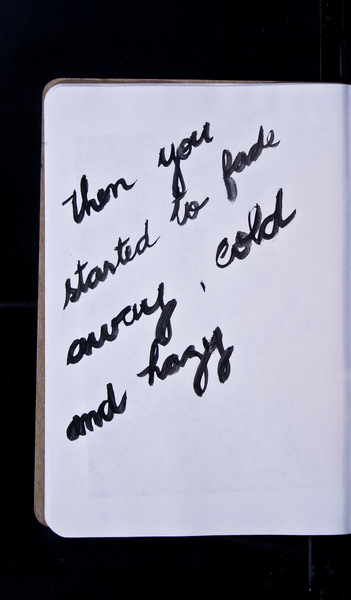 then you
started to fade
away, cold
and hazy